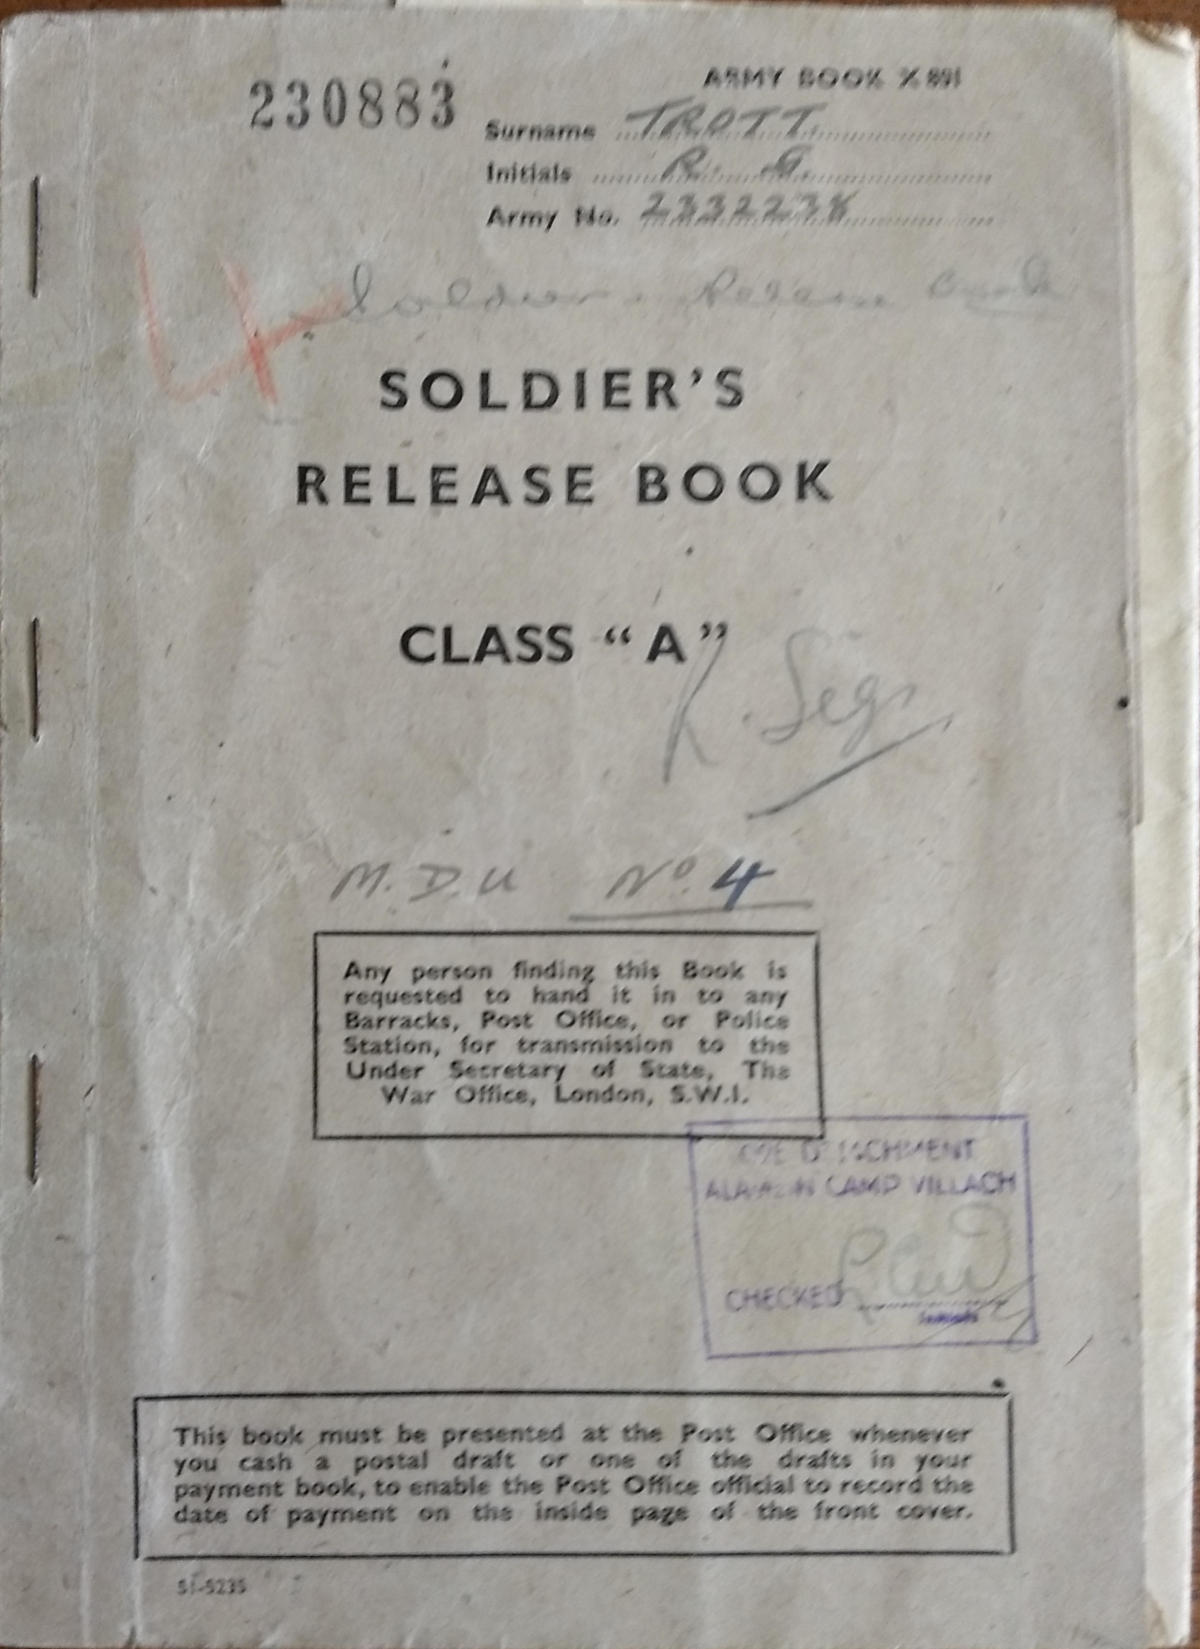 230883
ARMY BOOK X 801
Surname TROTT.
Initials R. G.
Army No. 2332238
4
Soldiers Release Book
SOLDIER'S
RELEASE BOOK
CLASS “A”
R. Sigs
M.D.U No. 4
Any person finding this Book is
requested to hand it in to any
Barracks, Post Office, or Police
Station, for transmission to the
Under Secretary of State, The
War Office, London, S.W.1.
CAMP VILLACH
CHECKED
Initials
This book must be presented at the Post Office whenever
you cash a postal draft or one of the drafts in your
payment book, to enable the Post Office official to record the
date of payment on the inside page of the front cover.
51-5235